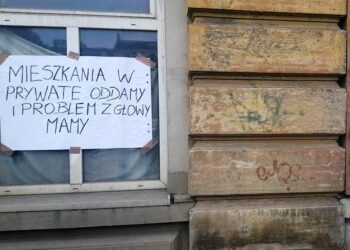 MIESZKANIA W
PRYWATE ODDAMY
I PROBLEM Z GŁOWY
MAMY